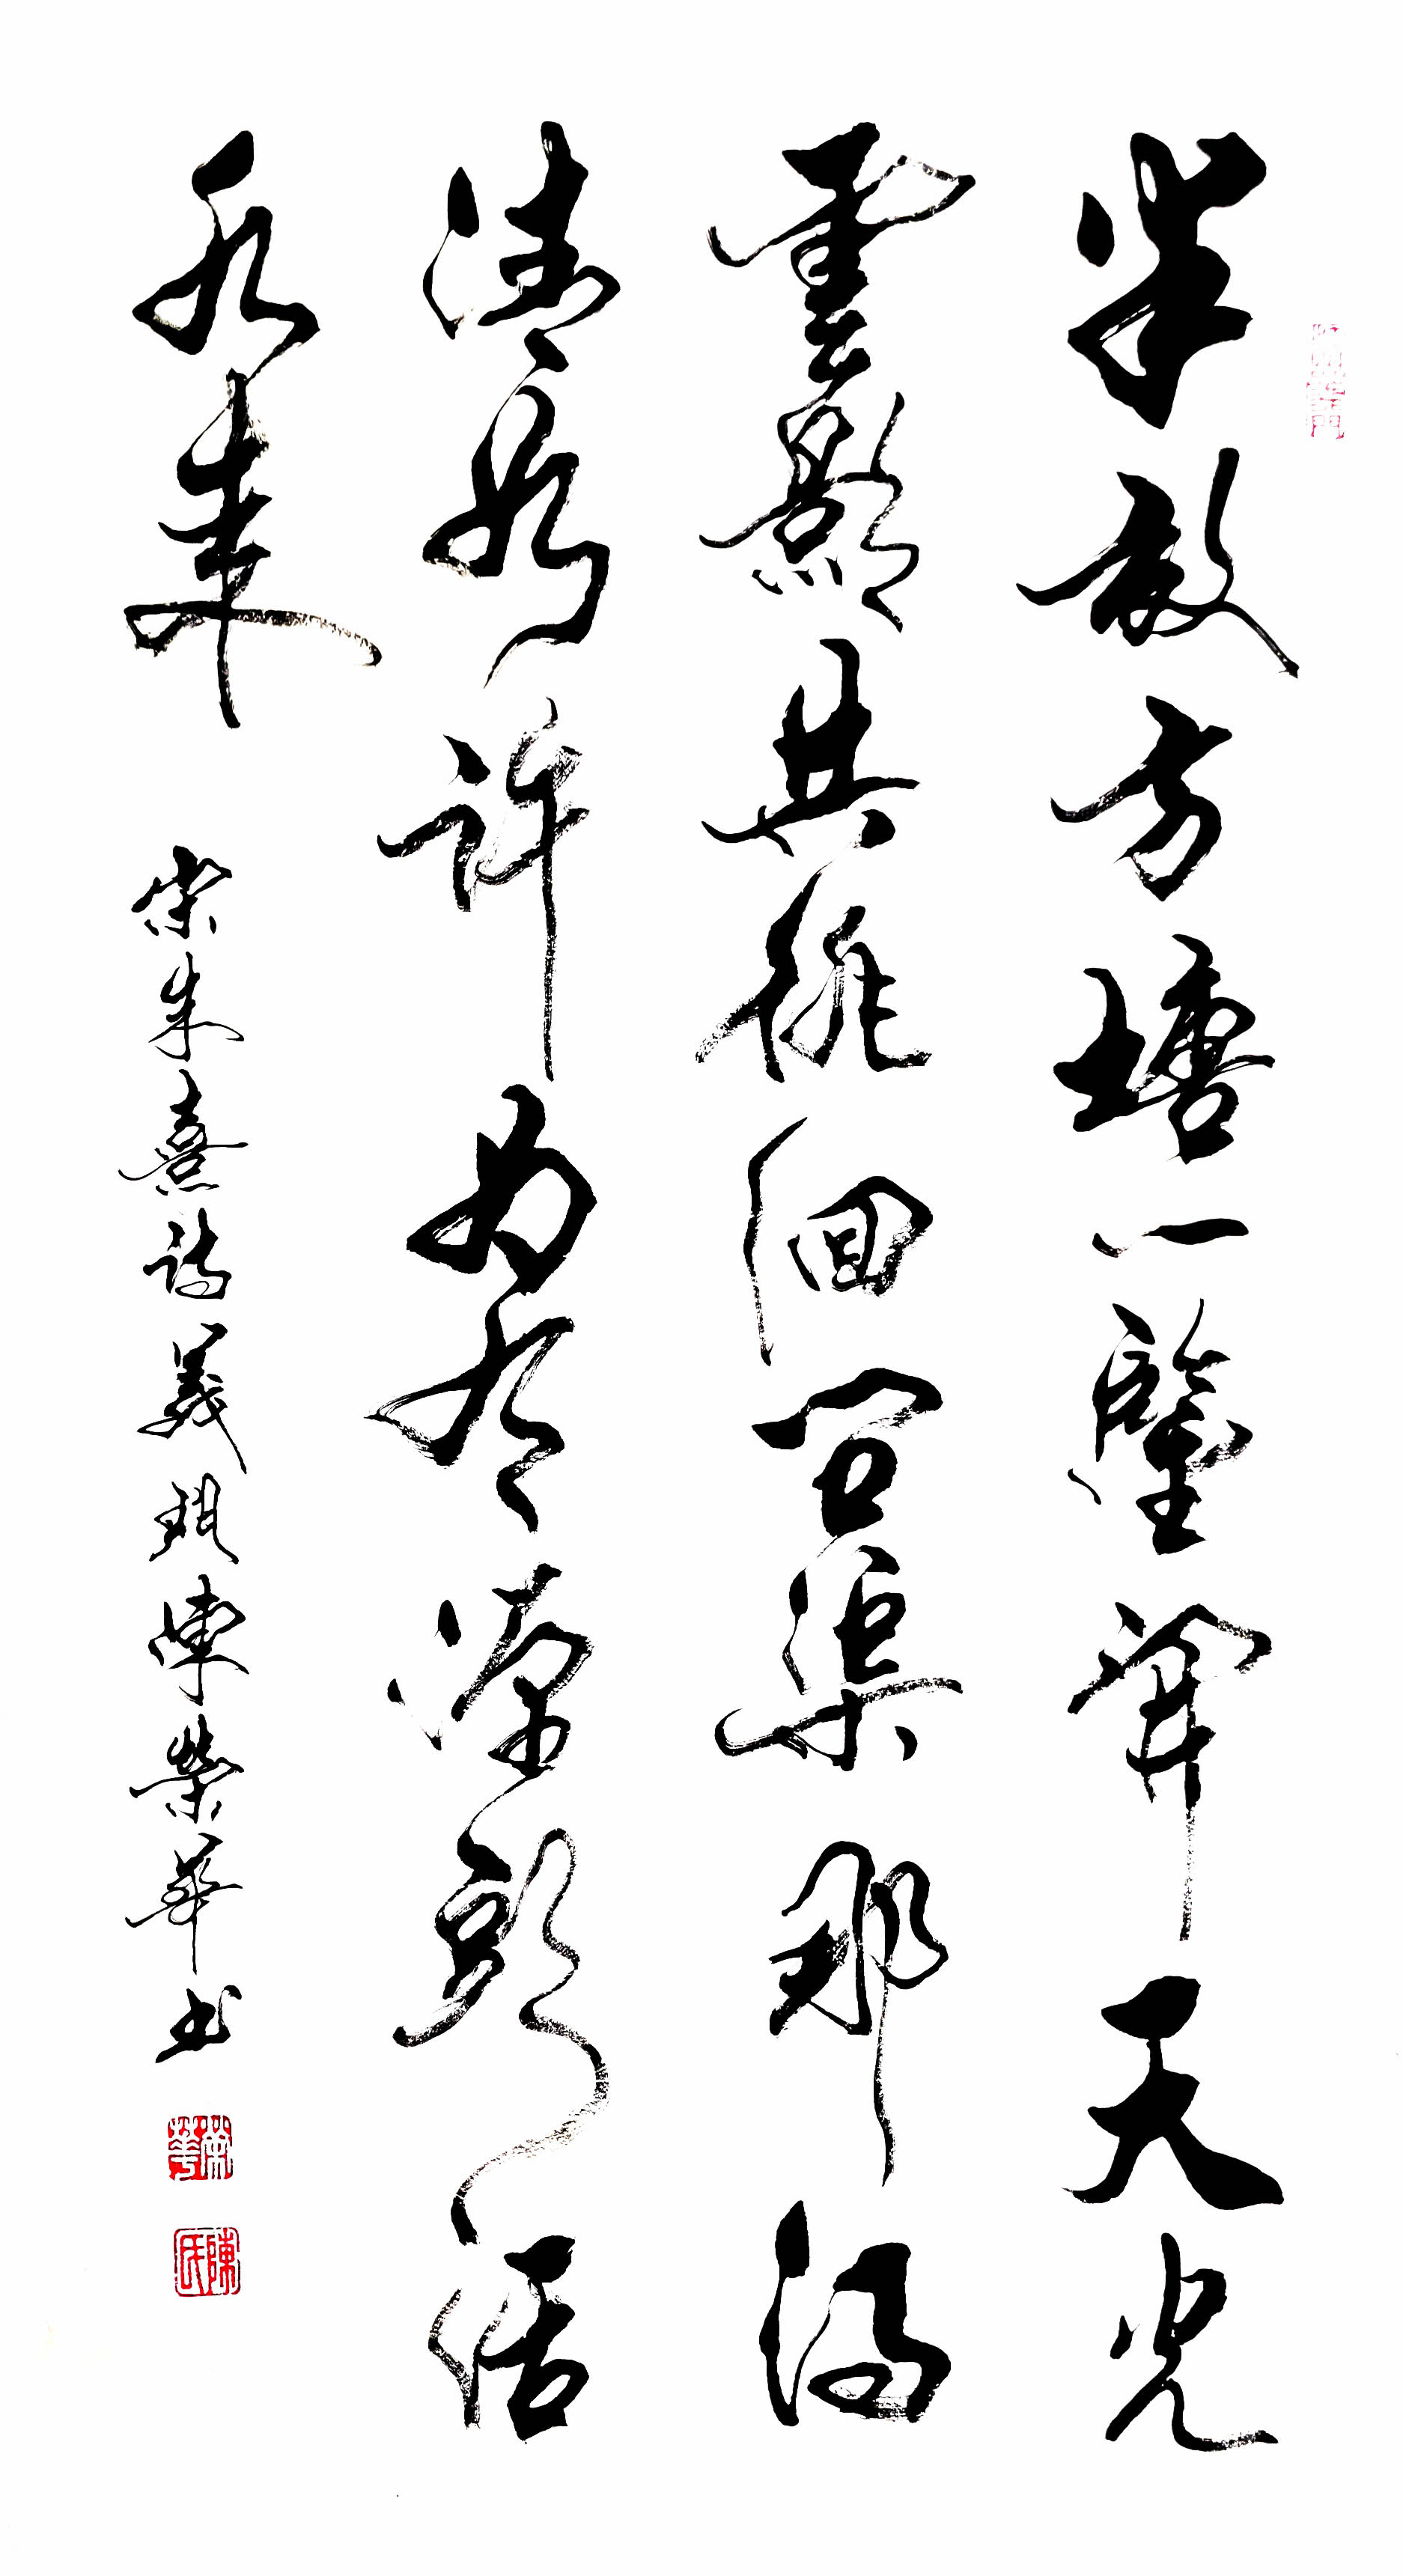 半畝方塘一鑒開天光
雲影共徘徊問渠那得
清如許為有源頭活
水來
宋朱熹詩 義烏陳榮華书
榮華
陳氏